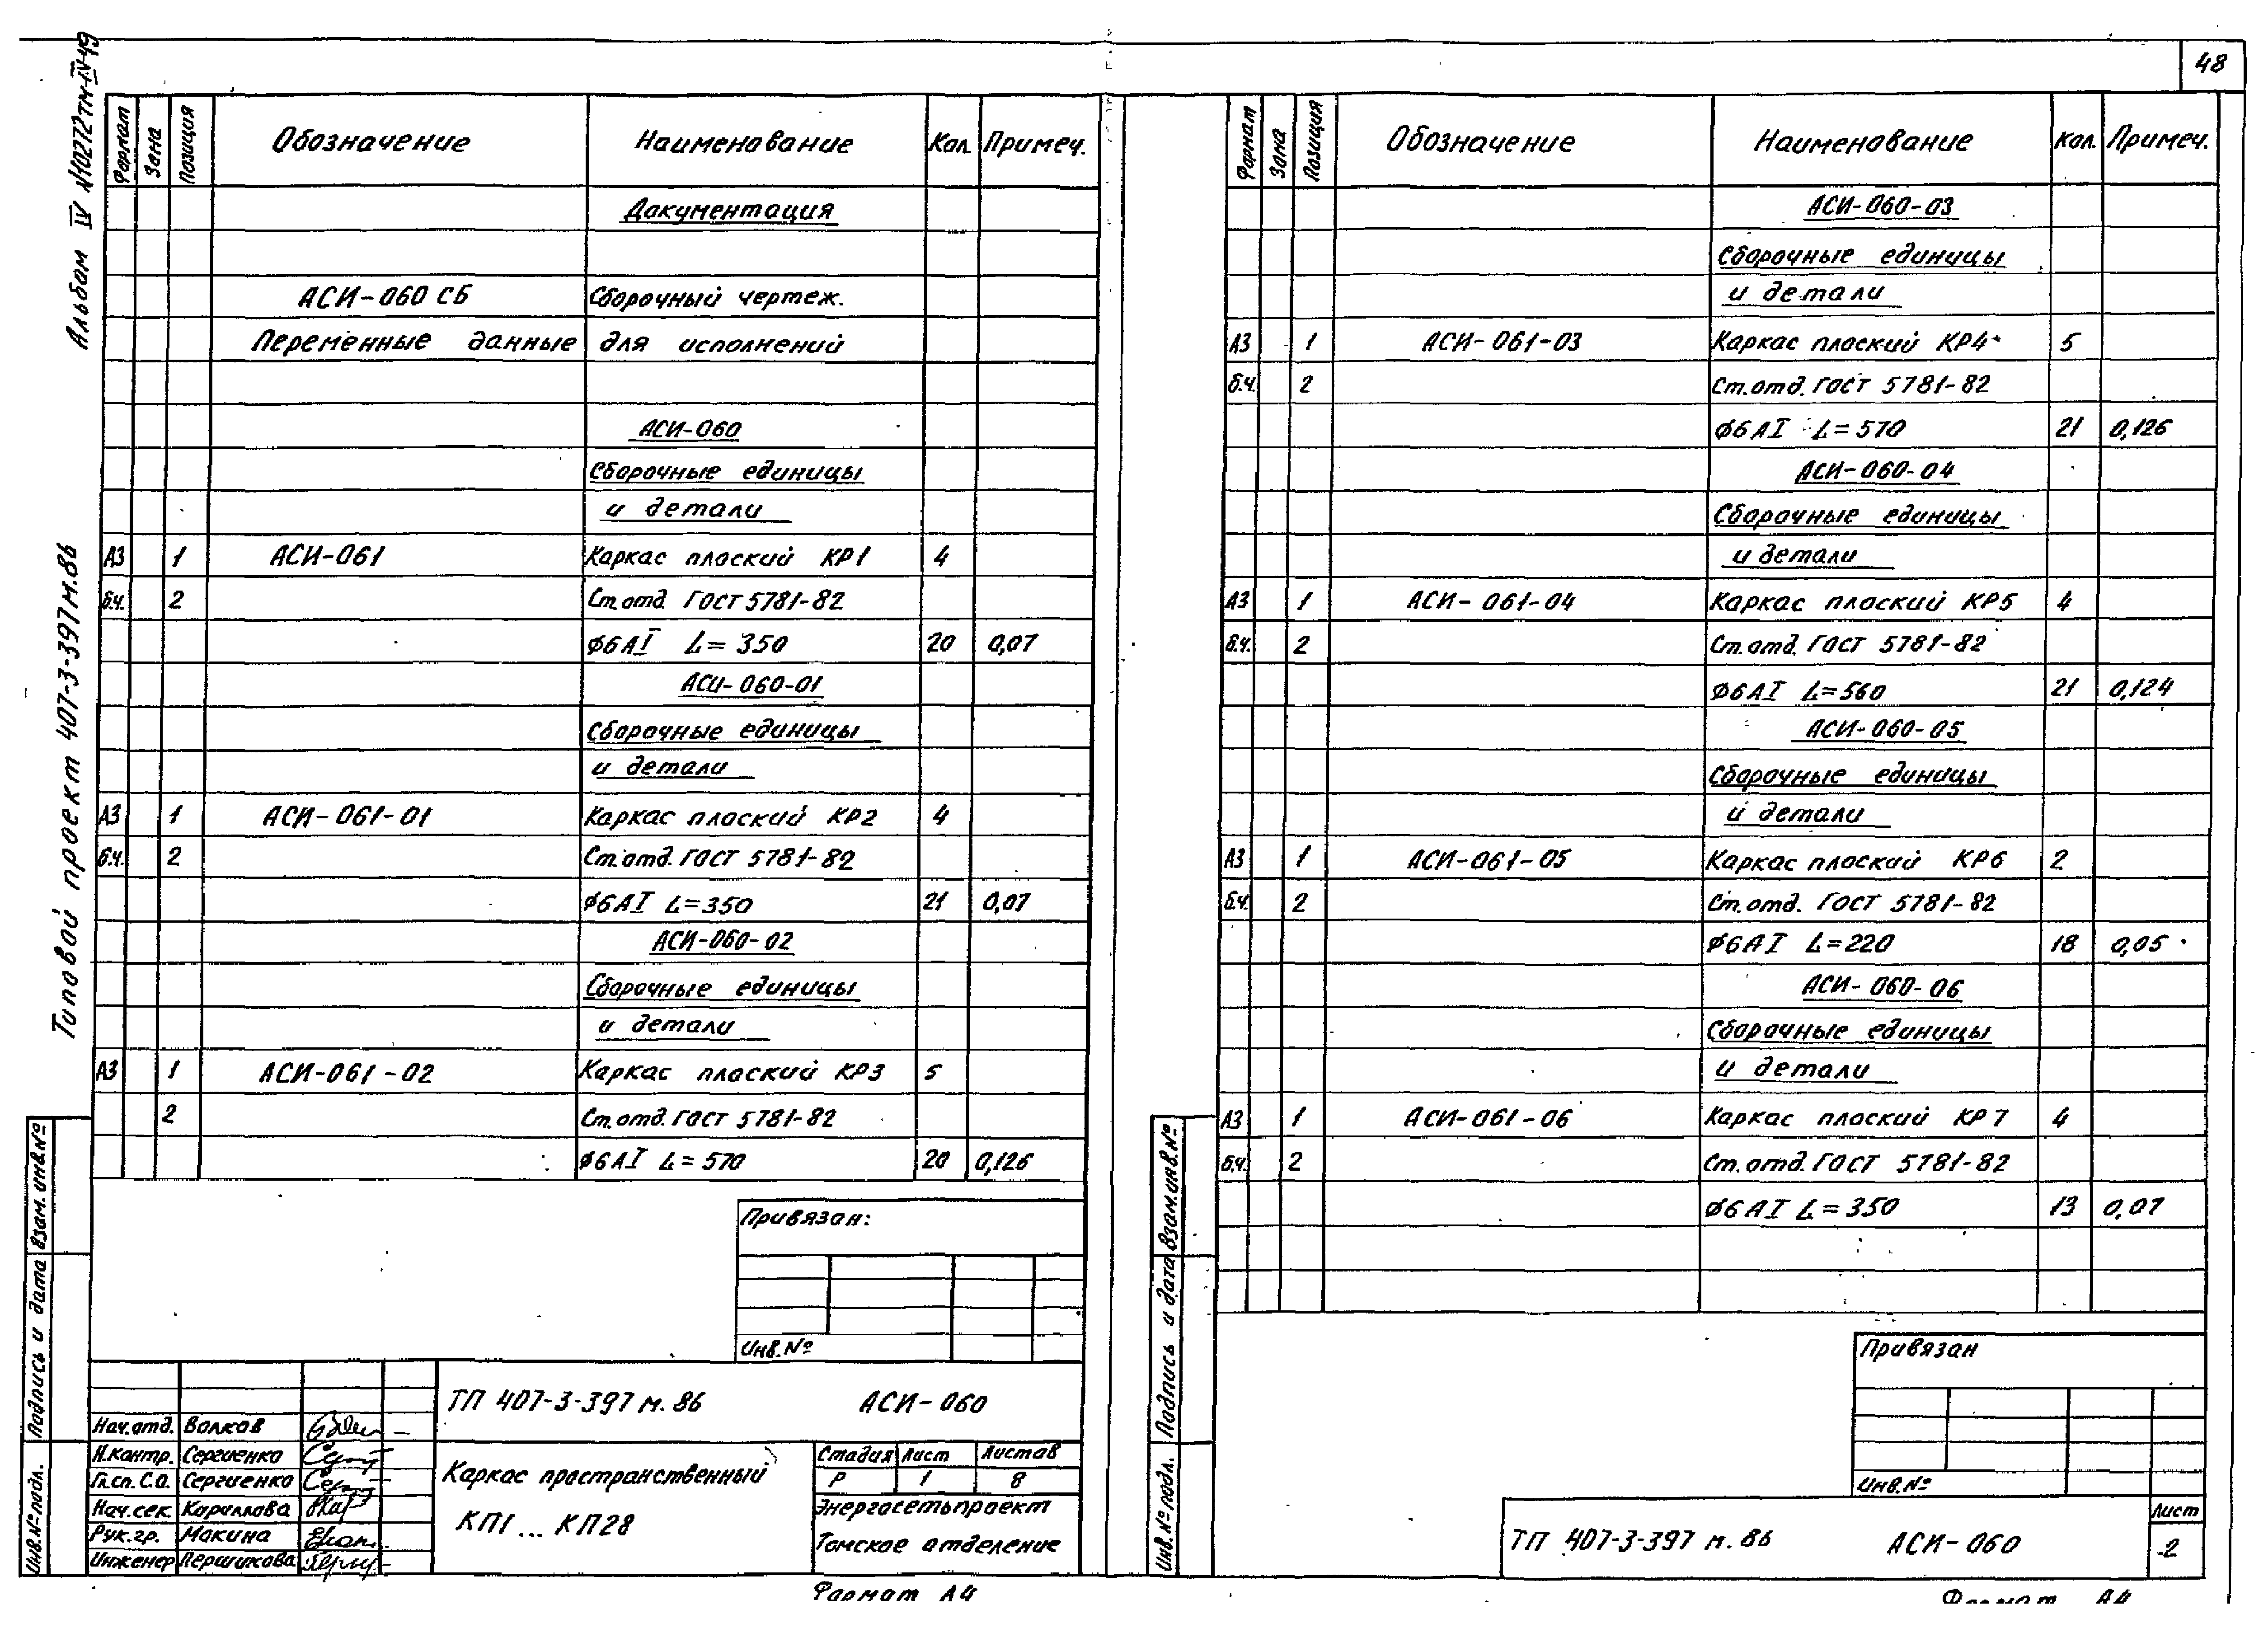 48
Альбом IV №10272тм-IV-49
Типовой проект 407-3-397м.86
Формат Зона Позиция Обозначение Наименование Кол. Примеч.
Документация
АСИ-060 СБ Сборочный чертеж.
Переменные данные для исполнений
АСИ-060
Сборочные единицы
и детали
А3 1 АСИ-061 Каркас плоский КР1 4
б.ч. 2 Ст.отд ГОСТ 5781-82
Ф6АI L=350 20 0,07
АСИ-060-01
Сборочные единицы
и детали
А3 1 АСИ-061-01 Каркас плоский КР2 4
б.ч. 2 Ст.отд. ГОСТ 5781-82
Ф6АI L=350 21 0,07
АСИ-060-02
Сборочные единицы
и детали
А3 1 АСИ-061-02 Каркас плоский КР3 5
2 Ст.отд. ГОСТ 5781-82
Ф6АI L=570 20 0,126
Привязан:
Инв.№
ТП 407-3-397м.86 АСИ-060
Нач.отд. Волков
Н.контр. Сергиенко
Гл.сп.С.О. Сергиенко
Нач.сек. Кириллова
Рук.гр. Макина
Инженер Першикова
Каркас пространственный
КП1...КП28
Стадия Лист Листов
Р 1 8
Энергосетьпроект
Томское отделение
Формат А4
Взам.инв.№
Подпись и дата
Инв.№ подл.
Формат Зона Позиция Обозначение Наименование Кол. Примеч.
АСИ-060-03
Сборочные единицы
и детали
А3 1 АСИ-061-03 Каркас плоский КР4 5
б.ч. 2 Ст.отд. ГОСТ 5781-82
Ф6АI L=570 21 0,126
АСИ-060-04
Сборочные единицы
и детали
А3 1 АСИ-061-04 Каркас плоский КР5 4
б.ч. 2 Ст.отд. ГОСТ 5781-82
Ф6АI L=560 21 0,124
АСИ-060-05
Сборочные единицы
и детали
А3 1 АСИ-061-05 Каркас плоский КР6 2
б.ч. 2 Ст.отд. ГОСТ 5781-82
Ф6АI L=220 18 0,05
АСИ-060-06
Сборочные единицы
и детали
А3 1 АСИ-061-06 Каркас плоский КР7 4
б.ч. 2 Ст.отд. ГОСТ 5781-82
Ф6АI L=350 13 0,07
Привязан
Инв.№
ТП 407-3-397м.86 АСИ-060
Лист
2
Формат А4
Взам.инв.№
Подпись и дата
Инв.№ подл.